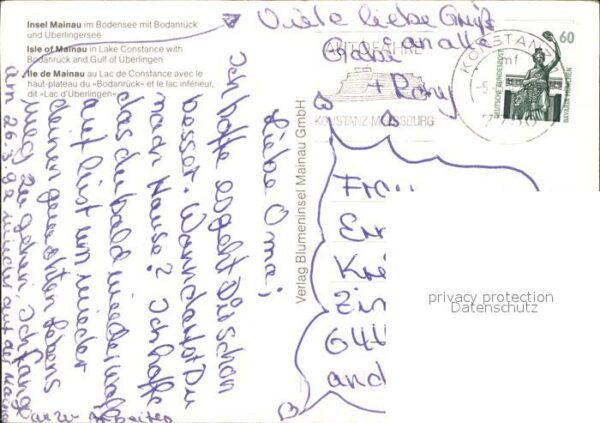 Insel Mainau im Bodensee mit Bodanrück
und Überlingersee
Isle of Mainau in Lake Constance with
Bodanrück and Gulf of Überlingen
Ile de Mainau au Lac de Constance avec le
haut-plateau du «Bodanrück» et le lac inférieur,
dit «Lac d'Überlingen»
Liebe Oma;
Ich hoffe es geht Dir schon
besser. Wann darfst Du
nach Hause? Ich hoffe
das du bald wieder
auf bist um wieder
deinen gewohnten Lebens
weg zu gehen, Ich fange
am 26.3.92 wieder auf der Maina
an zu arbeiten
Viele liebe Grüß
an alle
Gabi
+ Rony
Verlag Blumeninsel Mainau GmbH
AUTOFÄHRE
KONSTANZ-MEERSBURG
KONSTANZ
mf
60
DEUTSCHE BUNDESPOST
BAVARIA MÜNCHEN
Zin
and
privacy protection
Datenschutz